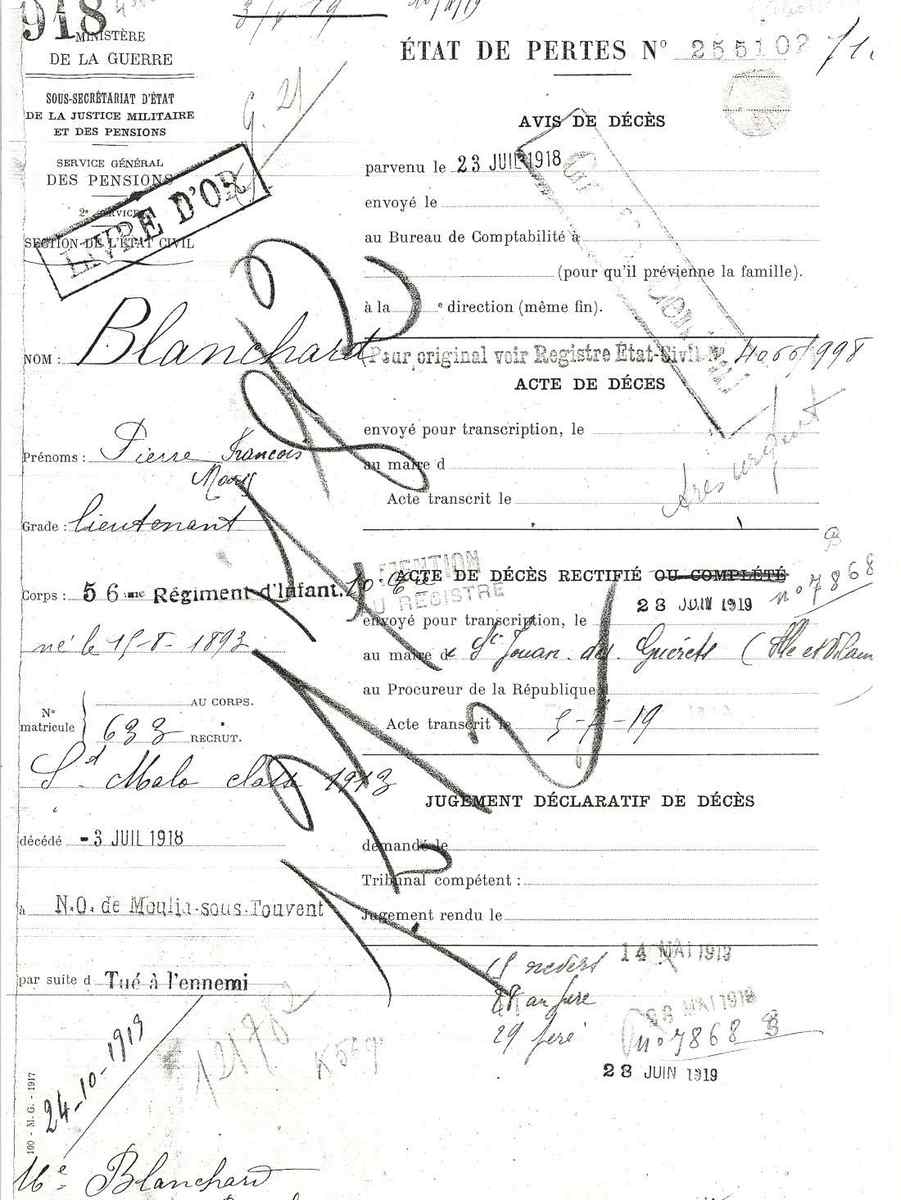 918
MINISTÈRE
DE LA GUERRE
SOUS-SECRÉTARIAT D'ÉTAT
DE LA JUSTICE MILITAIRE
ET DES PENSIONS
SERVICE GÉNÉRAL
DES PENSIONS
2e SERVICE
SECTION DE L'ÉTAT CIVIL
LIVRE D'OR
G. 21
ÉTAT DE PERTES N° 255102
AVIS DE DÉCÈS
parvenu le 23 JUIL 1918
envoyé le
au Bureau de Comptabilité à
(pour qu'il prévienne la famille).
à la e direction (même fin).
NOM : Blanchard
Pour original voir Registre État-Civil N°
ACTE DE DÉCES
envoyé pour transcription, le
au maire d
Acte transcrit le
Très urgent
Prénoms : Pierre François
Mary
Grade : lieutenant
Corps : 56me Régiment d'Infant. 10e Cie
né le 15-8-1893
N° matricule
AU CORPS.
633 RECRUT.
St Malo classe 1913
décédé - 3 JUIL 1918
à N.O. de Moulin-sous-Touvent
par suite d Tué à l'ennemi
MENTION
AU REGISTRE
ACTE DE DÉCÈS RECTIFIÉ OU COMPLÉTÉ
n° 7868
envoyé pour transcription, le 28 JUIN 1919
au maire de St Jouan des Guérets (Ille et Vilain
au Procureur de la République
Acte transcrit le 5-7-19
JUGEMENT DÉCLARATIF DE DÉCÈS
demandé le
Tribunal compétent :
Jugement rendu le
14 MAI 1919
MAI 1919
n° 7868 B
28 JUIN 1919
121782
24-10-1919
100 - M.-G. - 1917
Me Blanchard